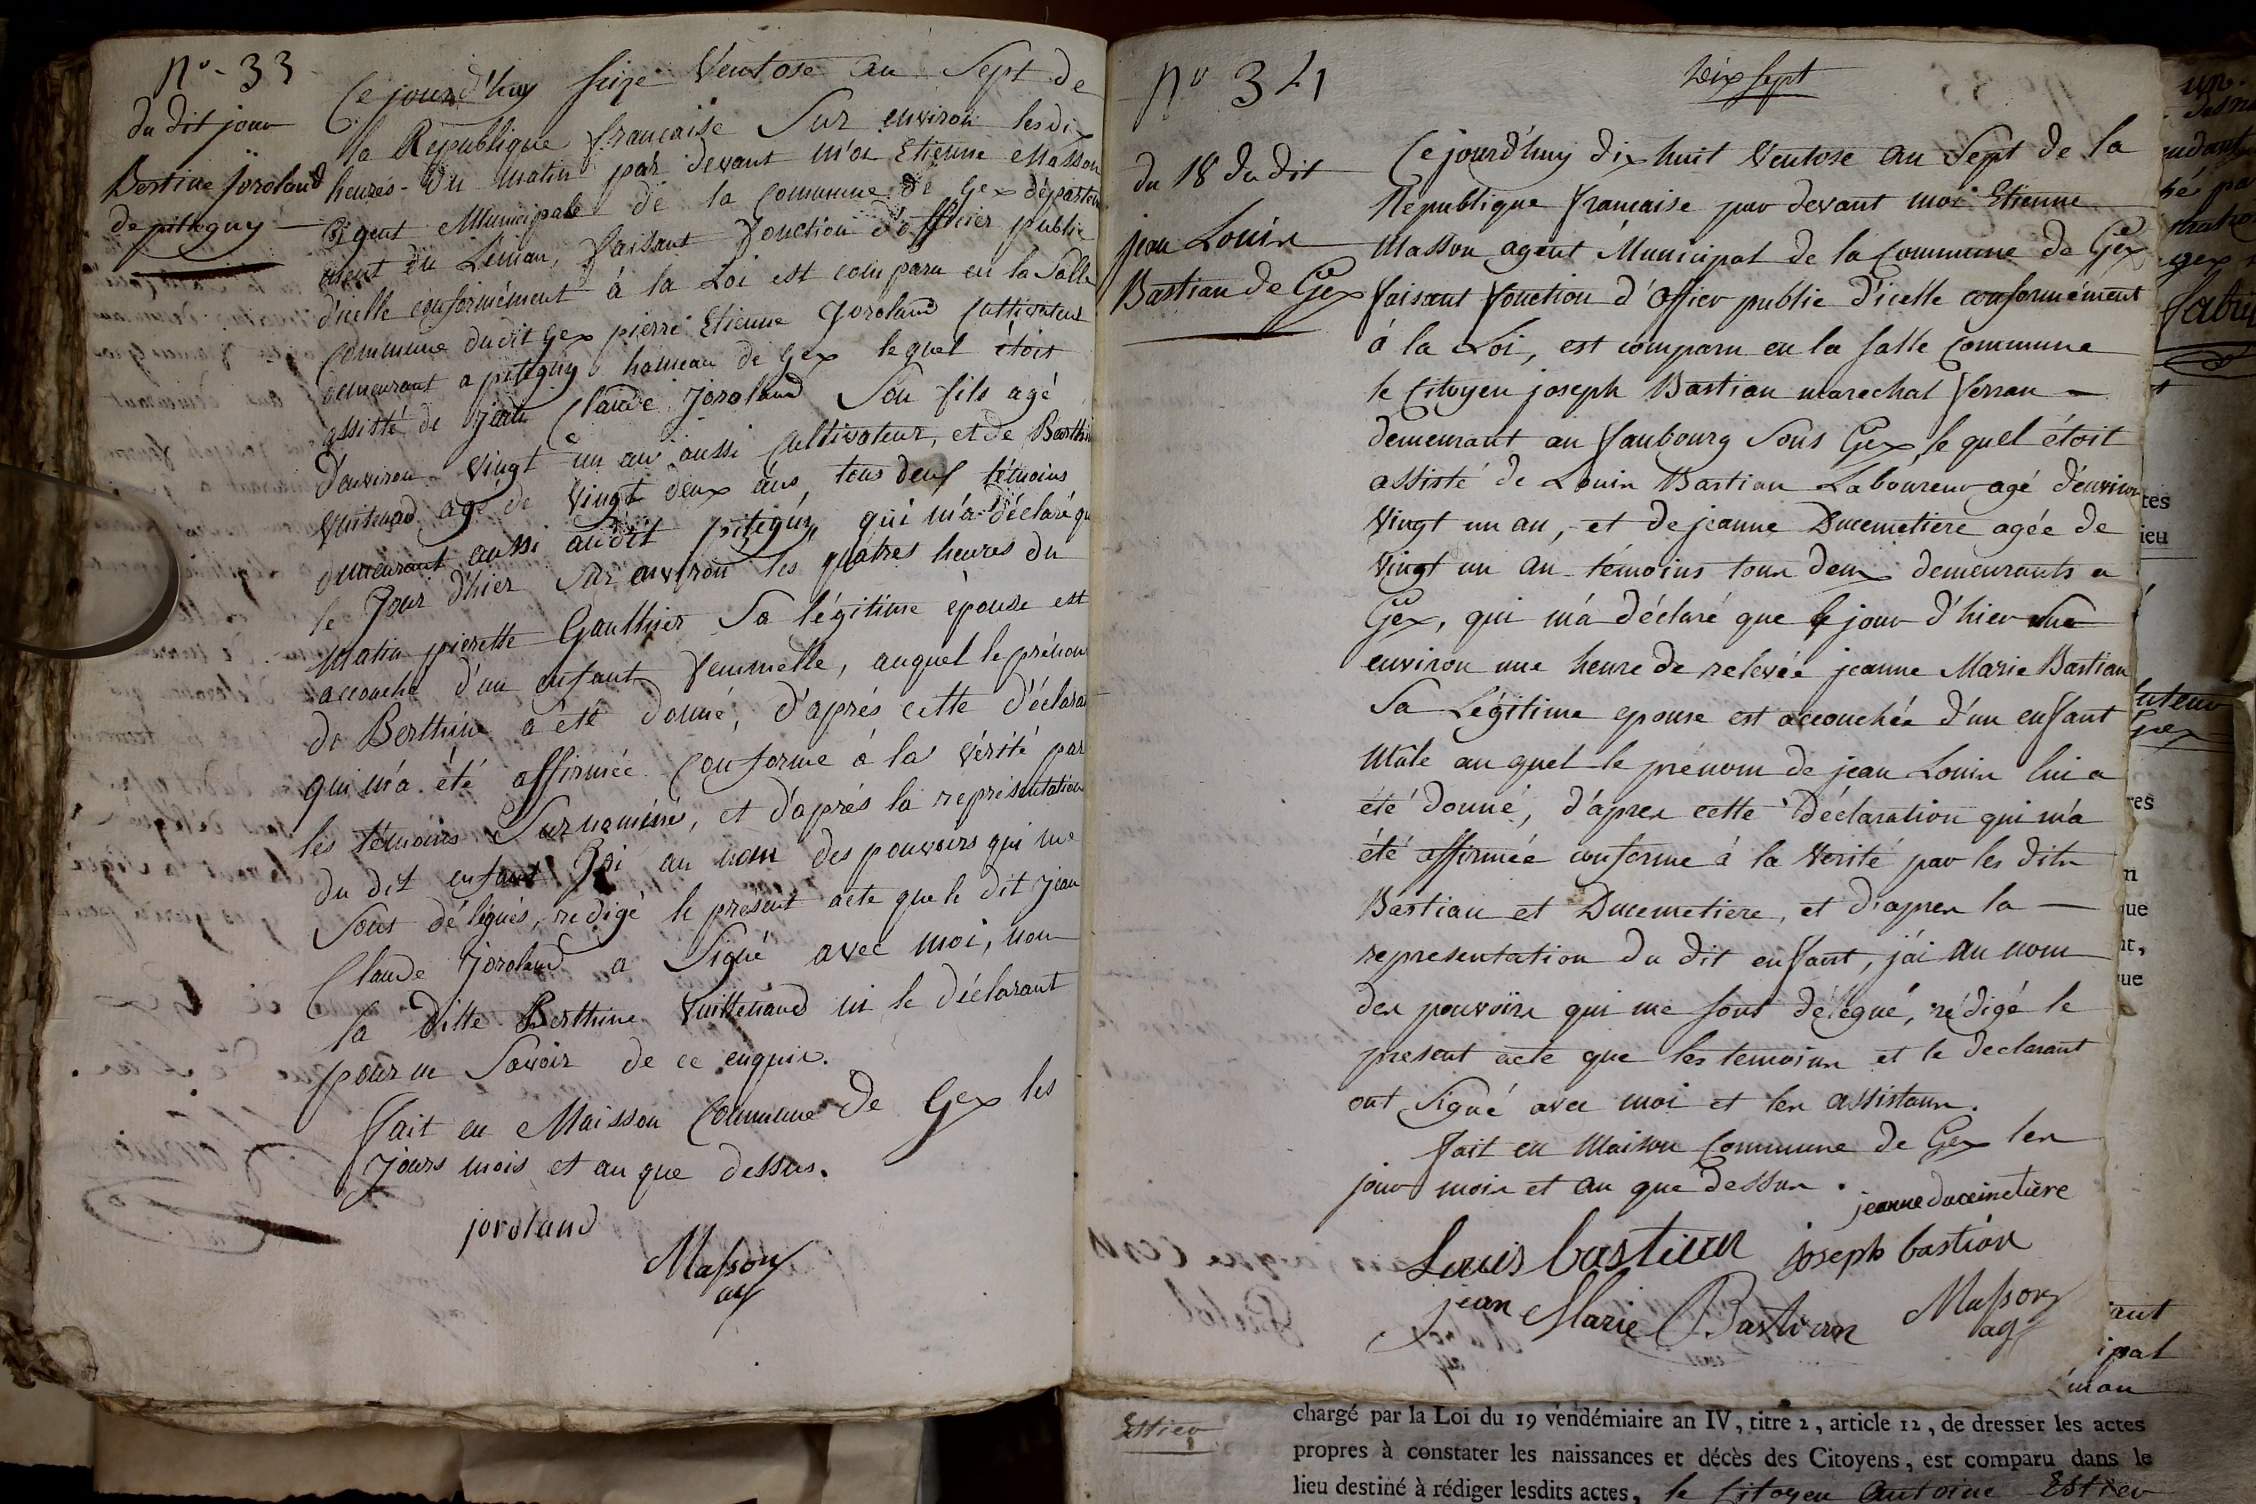 N° 33
du dit jour
Bertine Joroland
de pitegny
Cejourd'huy seize Ventose an Sept de
la République francaise Sur environ les dix
heures du matin par devant m'oi Etienne Masson
Agent Municipale de la Commune de Gex départe
ment du Léman, faisant fonction d'officier public
d'icelle conformément à la Loi est comparu en la Salle
Commune dudit Gex pierre Etienne Joroland Cultivateur
demeurant a pitegny hameau de Gex lequel étoit
assisté de Jean Claude Joroland Son fils agé
d'environ vingt un an aussi Cultivateur, et de Berthine
Vuittenaud agé de vingt deux ans, tous deux témoins
demeurant aussi audit pitegny, qui m'a déclaré que
le Jour d'hier Sur environ les quatres heures du
Matin pierette Gaulthier Sa légitime épouse est
accouché d'un enfant femmelle, auquel le prénom
de Berthine a été donné, d'aprés cette déclara
qui m'a été affirmée Conforme à la vérité par
les témoins Surnommé, et d'aprés la représentation
du dit enfant J'ai au nom des pouvoirs qui me
Sont délégués, redigé le présent acte que le dit Jean
Claude Joroland a Signé avec moi, non
la ditte Berthine Vuittenaud ni le déclarant
pour ne Savoir de ce enquis.
fait en Maisson Commune de Gex les
Jours mois et an que dessus.
joroland
Masson
ag
N° 34
dix sept
du 18 du dit
jean Louis
Bastian de Gex
Cejourd'huy dix huit Ventose an Sept de la
Republique francaise par devant moi Etienne
Masson agent Municipal de la Commune de Gex
faisant fonction d'officier public d'icelle conformément
à la Loi, est comparu en la salle Commune
le Citoyen joseph Bastian marechal ferran
demeurant au faubourg Sous Gex, lequel étoit
assisté de Louis Bastian Laboureur agé d'environ
Vingt un an, et de jeanne Ducemetiere agée de
Vingt un an témoins tous deux demeurants a
Gex, qui m'á déclaré que le jour d'hier sur
environ une heure de relevée jeanne Marie Bastian
Sa Légitime epouse est accouchée d'un enfant
Mâle auquel le prénom de jean Louis lui a
été donné, d'apres cette déclaration qui m'a
été affirmée conforme à la Verité par les dits
Bastian et Ducemetiere, et d'apres la
representation du dit enfant, j'ai au nom
des pouvoirs qui me sont délégué, rédigé le
present acte que les temoins et le declarant
ont Signé avec moi et les assistans.
fait en Maison Commune de Gex les
jour mois et an que dessus.
jeanne ducemetière
Louis bastian joseph bastian
jean Marie Bastian Masson
ag
gex
tes
ieu
res
ue
nt,
ue
tant
ipal
Léman
Estiev
chargé par la Loi du 19 vendémiaire an IV, titre 2, article 12, de dresser les actes
propres à constater les naissances et décès des Citoyens, est comparu dans le
lieu destiné à rédiger lesdits actes, le Citoyen Antoine Estiev